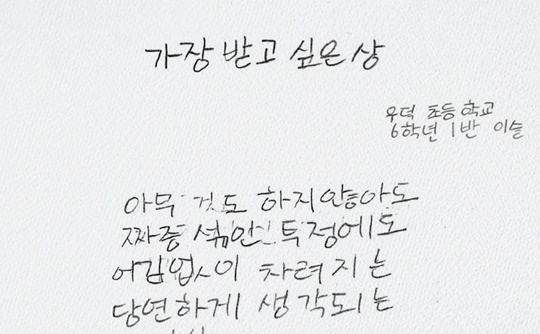 가장 받고 싶은 상
우덕 초등학교
6학년 1반 이슬
아무 것도 하지않아도
짜증 섞인 투정에도
어김없이 차려지는
당연하게 생각되는